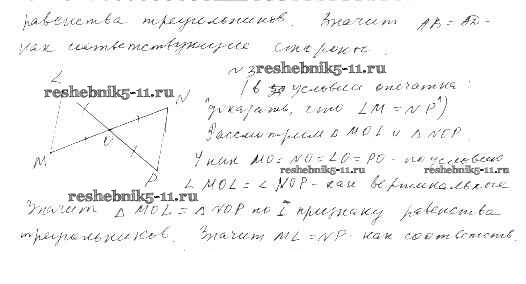 равенства треугольников. Значит AB = AD -
как соответствующие стороны.
reshebnik5-11.ru
N 3
(в условии опечатка:
L
reshebnik5-11.ru
N
"доказать, что LM = NP")
O
Рассмотрим Δ MOL и Δ NOP.
M
У них MO = NO = LO = PO - по условию
reshebnik5-11.ru
reshebnik5-11.ru
P
∠ MOL = ∠ NOP - как вертикальные
reshebnik5-11.ru
Значит Δ MOL = Δ NOP по I признаку равенства
треугольников. Значит ML = NP - как соответств.